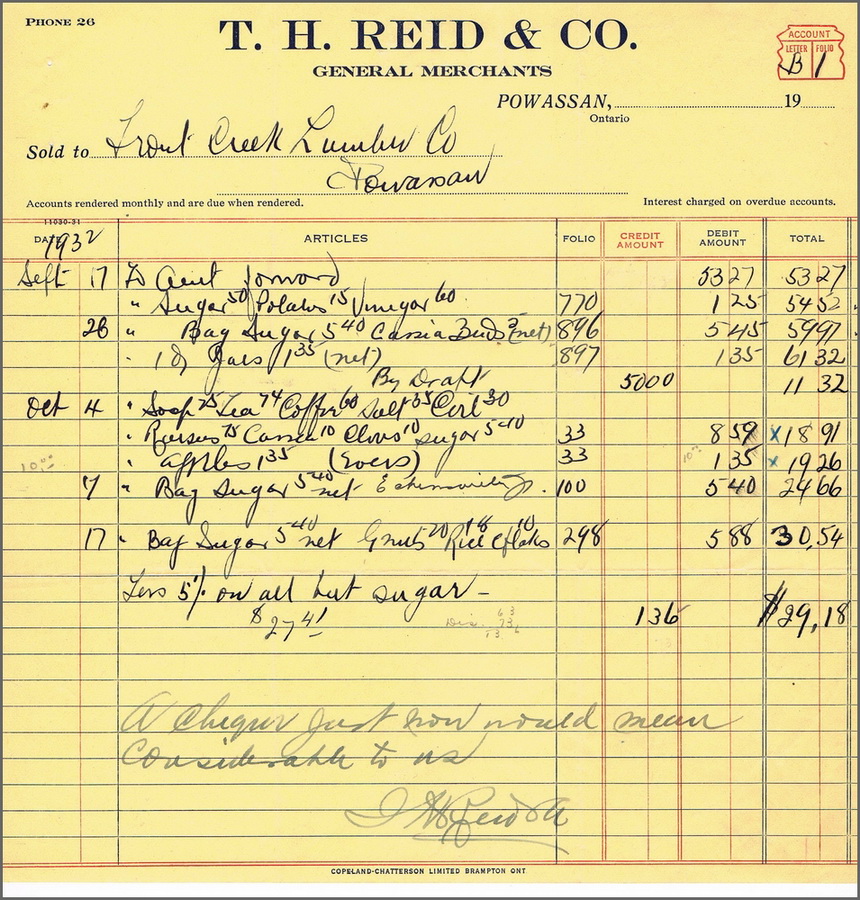 PHONE 26
T. H. REID & CO.
GENERAL MERCHANTS
ACCOUNT
LETTER FOLIO
B 1
POWASSAN, 19
Ontario
Sold to Trout Creek Lumber Co
Powassan
Accounts rendered monthly and are due when rendered. Interest charged on overdue accounts.
11030-31
DATE ARTICLES FOLIO CREDIT AMOUNT DEBIT AMOUNT TOTAL
1932
Sept 17 To Acmt forward 53 27 53 27
" Sugar 50 Potatoes 15 Vinegar 60 770 1 25 54 52
26 " Bag Sugar 5 40 Cassia Buds 5 (net) 896 5 45 59 97
" Jars 1 35 (net) 897 1 35 61 32
By Draft 50 00 11 32
Oct 4 " Soap 75 Tea 74 Coffee 60 Salt 35 30
" 75 Cassia 10 Cloves 10 sugar 5 40 33 8 59 x 18 91
10 00 " apples 1 35 (Evers) 33 10 00 1 35 x 19 26
7 " Bag Sugar 5 40 net 100 5 40 24 66
17 " Bag Sugar 5 40 net Gnuts 20 Rice 18 Cflaks 10 298 5 88 30,54
Less 5% on all but sugar -
$27 41 136 $29,18
A cheque just now would mean
Considerable to us
T H Reid & Co
COPELAND-CHATTERSON LIMITED BRAMPTON ONT